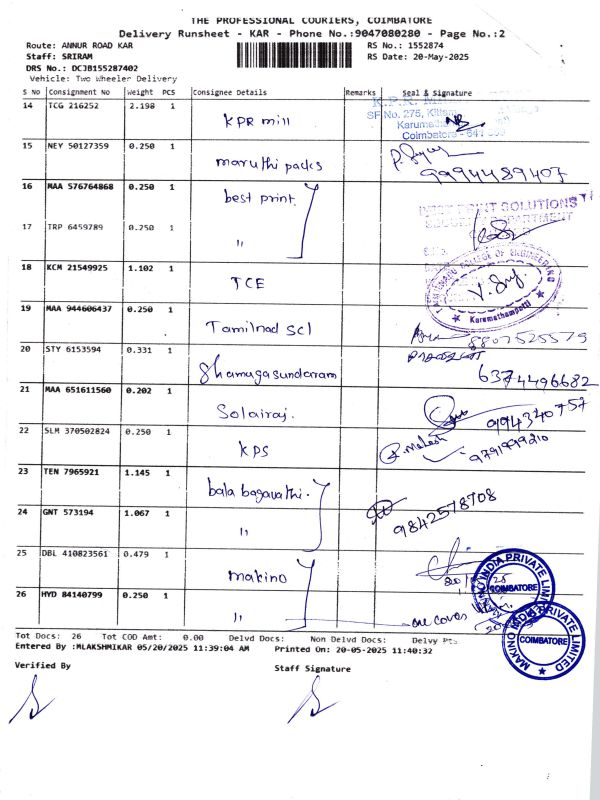 THE PROFESSIONAL COURIERS, COIMBATORE
Delivery Runsheet - KAR - Phone No.:9047080280 - Page No.:2
Route: ANNUR ROAD KAR RS No.: 1552874
Staff: SRIRAM RS Date: 20-May-2025
DRS No.: DCJB155287402
Vehicle: Two Wheeler Delivery
S No Consignment No Weight PCS Consignee Details Remarks Seal & Signature
14 TCG 216252 2.198 1 KPR mill
K.P.R.
SF No. 275,
Coimbatore - 641
15 NEY 50127359 0.250 1 maruthi packs 9994489407
16 MAA 576764868 0.250 1 best print
PRINT SOLUTIONS
17 TRP 6459789 0.250 1 "
18 KCM 21549925 1.102 1 TCE
COLLEGE OF ENGINEERING
Karumathampatti
19 MAA 944606437 0.250 1 Tamilnad scl 8807525579
20 STY 6153594 0.331 1 Shamugasundaram 6374496682
21 MAA 651611560 0.202 1 Solairaj. 994340757
22 SLM 370502824 0.250 1 KPS 9791999210
23 TEN 7965921 1.145 1 bala bagavathi.
24 GNT 573194 1.067 1 " 9842578708
25 DBL 410823561 0.479 1 makino
MAKINO INDIA PRIVATE LIMITED
COIMBATORE
26 HYD 84140799 0.250 1 " one cover
MAKINO INDIA PRIVATE LIMITED
COIMBATORE
Tot Docs: 26 Tot COD Amt: 0.00 Delvd Docs: Non Delvd Docs: Delvy Pts:
Entered By :MLAKSHMIKAR 05/20/2025 11:39:04 AM Printed On: 20-05-2025 11:40:32
Verified By Staff Signature